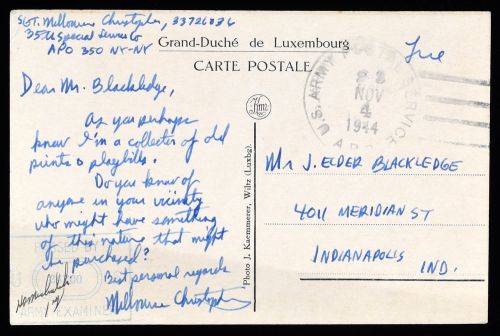 SGT. Millbourne Christopher, 33726036
35 Special Service Co
APO 350 NY-NY
Free
Grand-Duché de Luxembourg
CARTE POSTALE
U.S. ARMY POSTAL SERVICE
NOV
4
1944
A.P.O.
Dear Mr. Blackledge,
As you perhaps
know I'm a collector of old
prints & playbills.
Do you know of
anyone in your vicinity
who might have something
of this nature that might
be purchased?
Best personal regards
Millbourne Christopher
PASSED BY
ARMY EXAMINER
Photo J. Kaemmerer, Wiltz (Luxbg).
Mr J. ELDER BLACKLEDGE
4011 MERIDIAN ST
INDIANAPOLIS
IND.